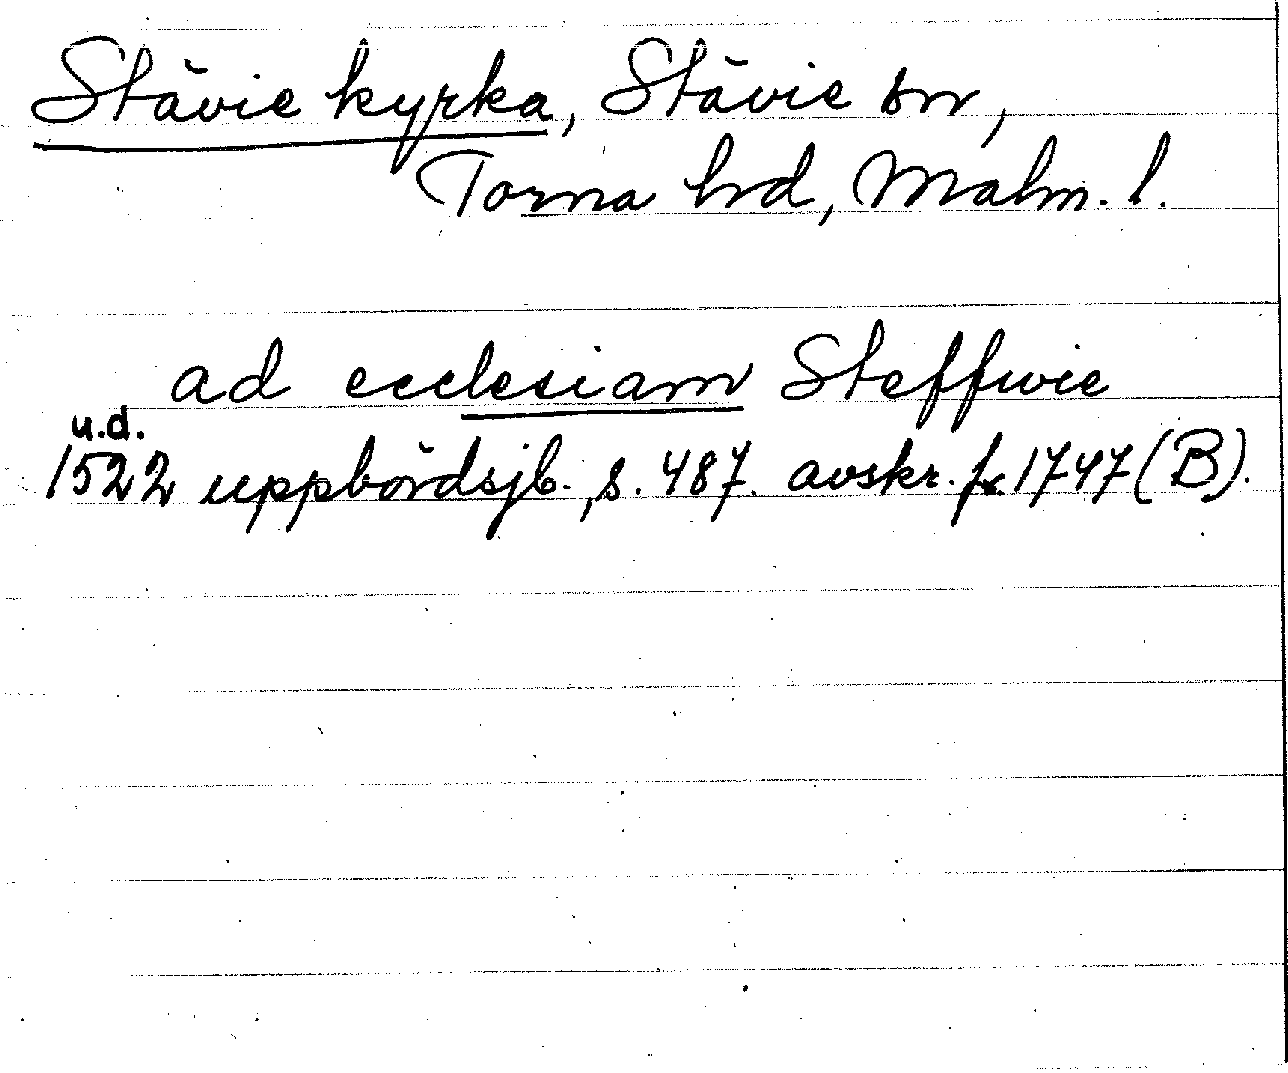 Stävie kyrka, Stävie sn,
Torna hd, Malm. l.
ad ecclesiam Steffwie
u.d.
1522 uppbördsjb., s. 487. avskr. fr. 1747 (B).